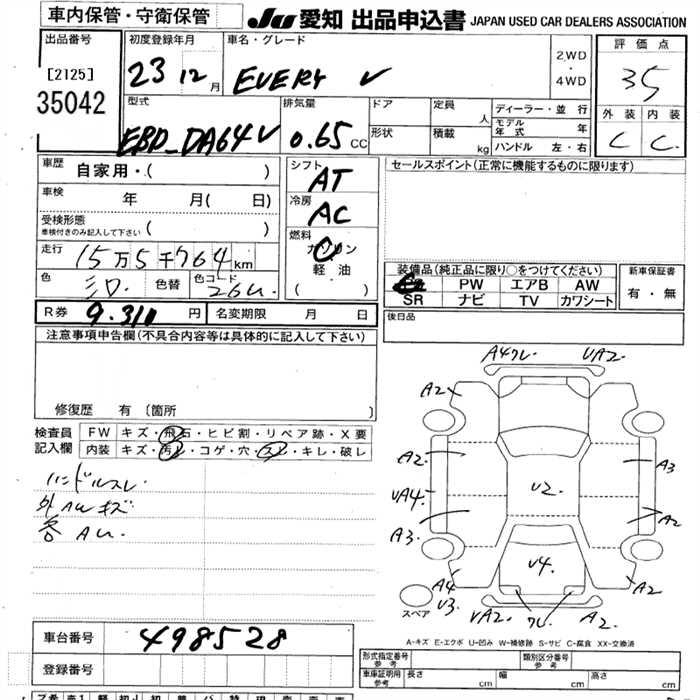 車内保管・守衛保管
JU 愛知 出品申込書 JAPAN USED CAR DEALERS ASSOCIATION
出品番号
[2125]
35042
初度登録年月
23 12 月
車名・グレード
EVERY V
2,WD
・
4WD
評価点
35
外装 内装
C C
型式
EBD_DA64V
排気量
0.65 CC
ドア
形状
定員 人
積載 kg
ディーラー・並行
モデル年式 年
ハンドル 左・右
車歴
自家用・( )
車検 年 月( 日)
受検形態
車検付きのみ記入して下さい ( )
走行 15万5千764 km
色 色替 色コード 26U
シフト AT
冷房 AC
燃料
ガソリン
軽油
( )
セールスポイント(正常に機能するものに限ります)
装備品(純正品に限り○をつけてください)
PW エアB AW
SR ナビ TV カワシート
新車保証書
有・無
後日品
R券 9.310 円 名変期限 月 日
注意事項申告欄(不具合内容等は具体的に記入して下さい)
修復歴 有 〔箇所 〕
検査員記入欄
FW キズ・飛石・ヒビ割・リペア跡・X要
内装 キズ・汚れ・コゲ・穴・スレ・キレ・破レ
ハンドルスレ
外AWキズ
各AU.
A4ワレ UA2
A2
A2 A3
UA4 U2.
A3 A2
U4.
A4
U3. UA2 ワレ A2 A2
スペア
A-キズ E-エクボ U-凹み W-補修跡 S-サビ C-腐食 XX-交換済
車台番号 498528
登録番号
形式指定番号 参考
類別区分番号 参考
車庫証明用 参考 長さ cm 幅 cm 高さ cm